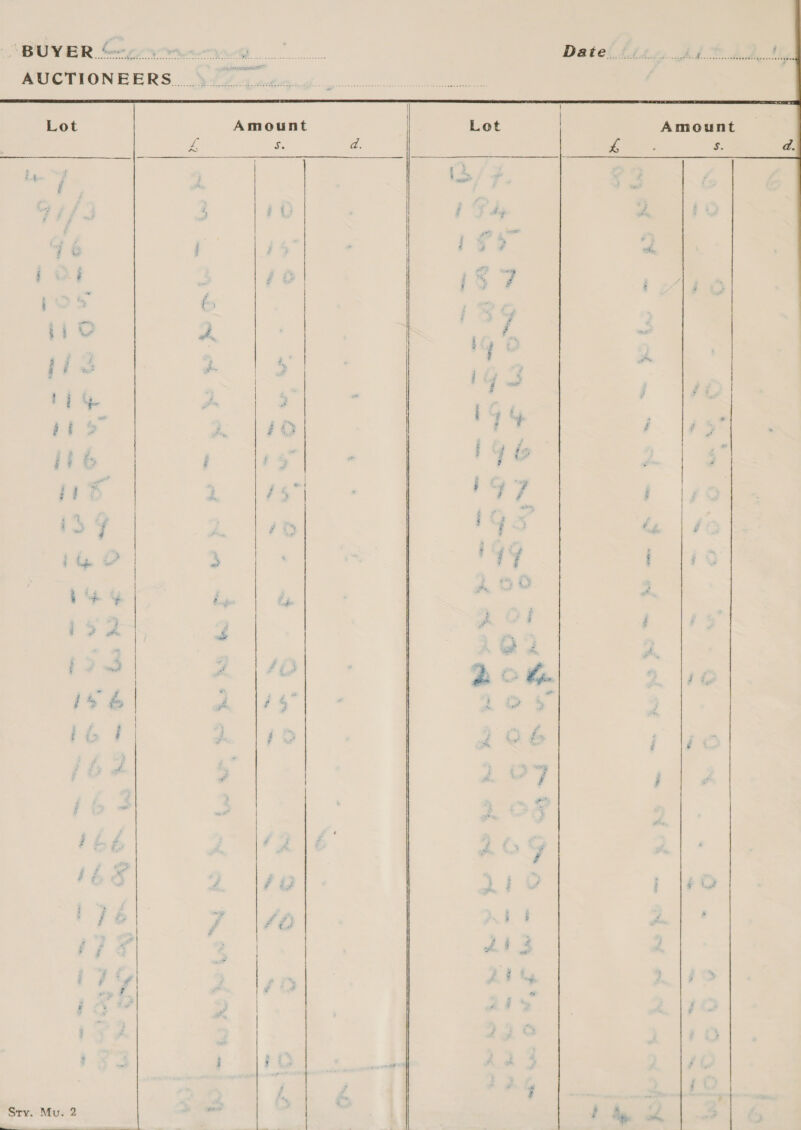 BUYER Date
AUCTIONEERS
Lot Amount Lot Amount
£ s. d. £ s. d.
47 2 B/f. 83 6 6
91/3 3 10 184 2 10
96 1 15 - 185 2
101 3 10 187 1 10
105 6 189 3
110 2 190 2
113 2 5 193 1 10
114 2 5 - 194 1 15
115 2 10 196 2 5
116 1 15 - 197 1 10
118 2 15 - 198 4 10
139 2 10 199 1 10
140 3 200 2
144 4 4 201 1 15
152 2 202 2
153 2 10 204 2 10
156 2 15 - 205 2
161 2 10 206 1 10
162 5 207 1 2
163 3 208 2
166 2 12 6 209 2
168 2 10 210 1 10
176 7 10 211 2
178 2 213 2
179 2 10 214 2 10
180 2 215 2 10
182 2 220 2 10
183 1 10 223 2 10
224 2 10
83 6 6 142 3 6
Sty. Mu. 2